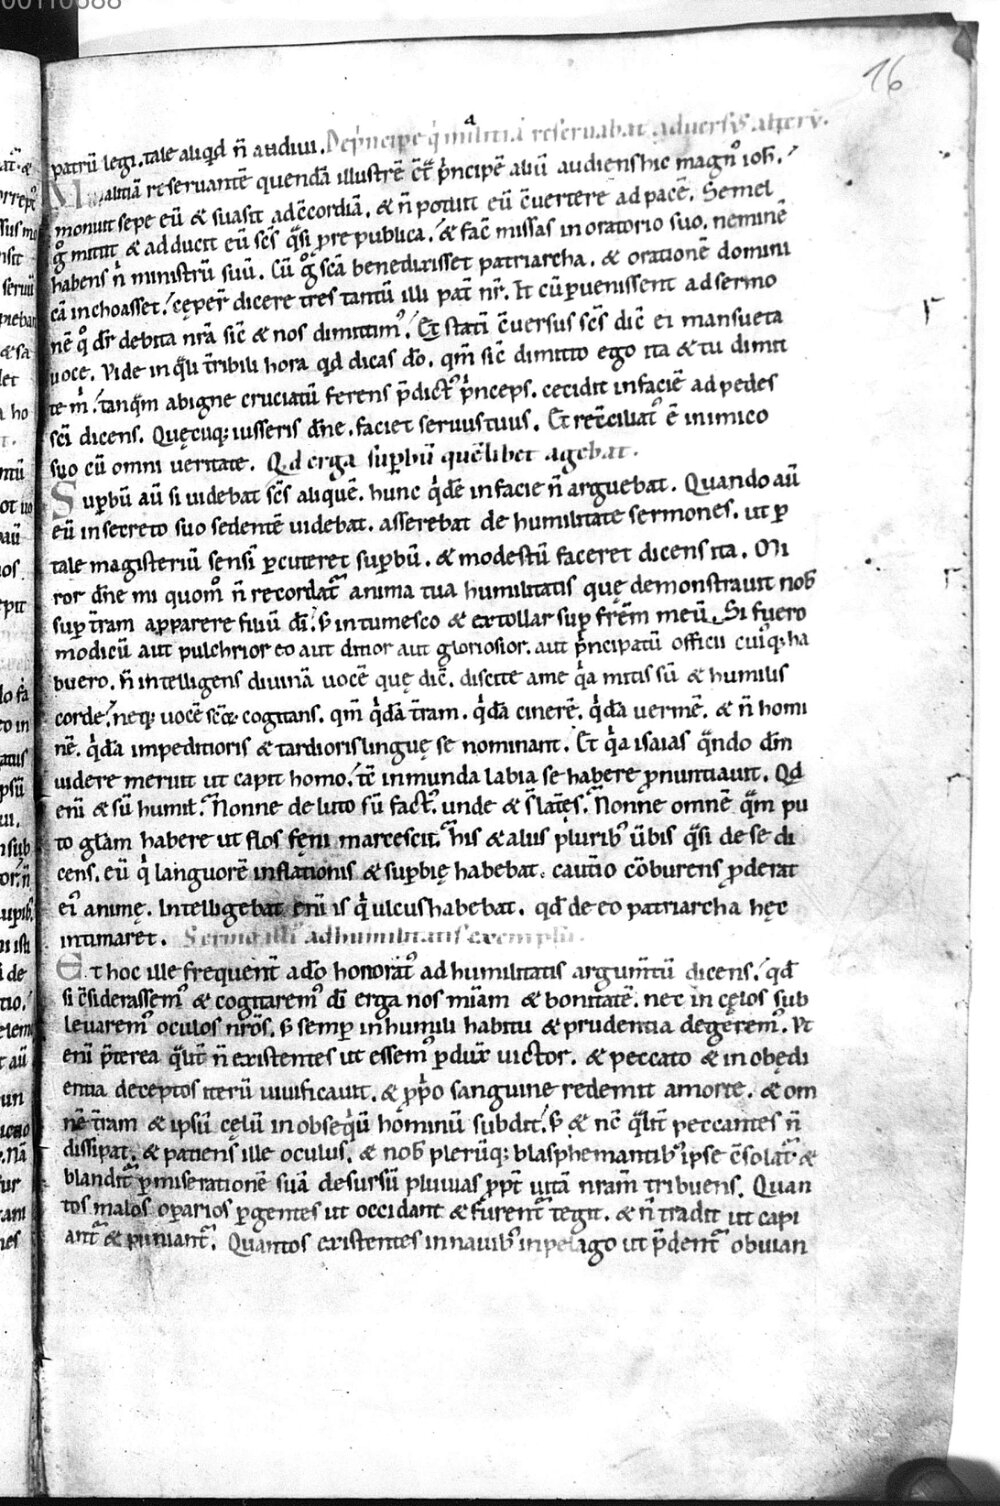 00110688
16
patrū legi. tale aliqd n̄ audiui. De p̉ncipe q̉ militiā reseruabat aduersꝰ alterū.
Malitiā reseruantē quendā illustrē c̄t̄ p̉ncipē aliū audiens hic magnꝰ ioh̄.
monuit sepe eū & suasit ad c̄cordiā. & n̄ potuit eū c̄uertere ad pacē. Semel
g̊ mittit & adducit eū sc̄s q̄si p re publica. & fac̄ missas in oratorio suo. neminē
habens n̉ ministrū suū. Cū g̊ sc̄a benedixisset patriarcha. & orationē domini
cā inchoasset. cęper̄ dicere tres tantū illi pat̄ nr̄. Et cū puenissent ad sermo
nē q̊ dr̄ debita nr̄a sic̄ & nos dimittimꝰ. Et statī c̄uersus sc̄s dic̄ ei mansueta
uoce. Vide in q̄li t̄ribili hora qd dicas d̄o. qm̄ sic̄ dimitto ego ita & tu dimit
te m̉. tanq̄m ab igne cruciatū ferens p̄dictꝰ p̉nceps. cecidit in faciē ad pedes
sc̄i dicens. Quęcuq; iusseris dn̄e. faciet seruus tuus. Et rec̄ciliatꝰ ē inimico
suo cū omni ueritate. Qd erga supbū quēlibet agebat.
Supbū aū si uidebat sc̄s aliquē. hunc q̉dē in facie n̄ arguebat. Quando aū
eū in secreto suo sedentē uidebat. asserebat de humilitate sermones. ut p
tale magisteriū sensī pcuteret supbū. & modestū faceret dicens ita. Mi
ror dn̄e mi quom̊ n̄ recordat᷑ anima tua humilitatis quę demonstrauit nob̄
sup t̄ram apparere filiū dī. s̄ intumesco & extollar sup fr̄em meū. Si fuero
modicū aut pulchrior eo aut ditior aut gloriosior. aut p̉ncipatū officii cuiq̉; ha
buero. n̄ intelligens diuinā uocē quę dic̄. discite a me q̉a mitis sū & humilis
corde. neq; uocē sc̄oꝝ cogitans. qm̄ q̉dā t̄ram. q̉dā cinerē. q̉dā uermē. & n̄ homi
nē. q̉dā impeditioris & tardioris linguę se nominant. Et q̉a isaias q̄ndo dm̄
uidere meruit ut capit homo. tc̄ inmunda labia se habere pnuntiauit. Qd
enī & sū humil̄. Nonne de luto sū factꝰ. unde & s̄ lateres. Nonne omnē q̄m pu
to gl̄am habere ut flos fęni marcescit. his & aliis pluribꝰ ūbis q̄si de se di
cens. eū q̉ languorē inflationis & supbię habebat. cautio c̄oburens pderat
eiꝰ animę. Intelligebat enī is q̉ ulcus habebat. qd de eo patriarcha hęc
intimaret. Sermo illiꝰ ad humilitatis exemplū.
Et hoc ille frequent̄ ad̄o honoratꝰ ad humilitatis argum̄tū dicens. qd
si c̄siderassemꝰ & cogitaremꝰ dī erga nos mīam & bonitatē. nec in cęlos sub
leuaremꝰ oculos nr̄os. s̄ semp in humili habitu & prudentia degeremꝰ. Vt
enī p̄terea q̄ūt n̄ existentes ut essemꝰ pdux̄ uictor. & peccato & inobędi
entia deceptos iterū uiuificauit. & pp̉o sanguine redemit a morte. & om
nē t̄ram & ipsū cęlū in obseq̉ū hominū subdit. s̄ & nc̄ q̄lit̄ peccantes n̄
dissipat. & patiens ille oculus. & nob̄ plerūq; blasphemantibꝰ ipse c̄solat᷑ &
blandit᷑ p miserationē suā desursū pluuias ppt̄ uitā nr̄am tribuens. Quan
tos malos oparios pgentes ut occidant & furent᷑ tegit. & n̄ tradit ut capi
ant᷑ & puniant᷑. Quantos existentes in nauibꝰ in pelago ut p̄dent᷑ obuian